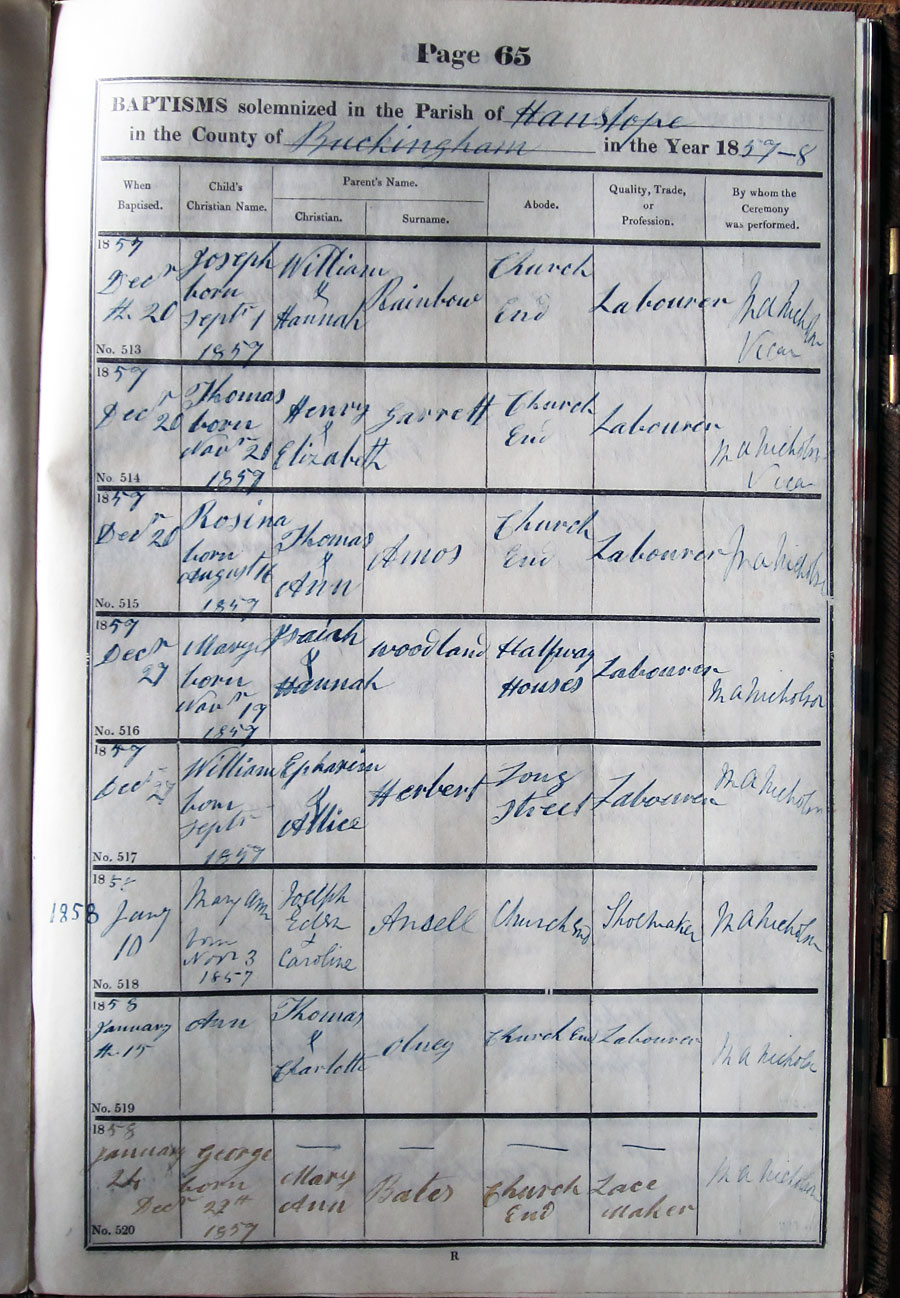 Page 65
BAPTISMS solemnized in the Parish of Hanslope
in the County of Buckingham in the Year 1857-8
When Baptised.
Child's Christian Name.
Parent's Name.
Christian.
Surname.
Abode.
Quality, Trade, or Profession.
By whom the Ceremony was performed.
1857
Decr
th 20
No. 513
Joseph
born
Septr 1
1857
William
&
Hannah
Rainbow
Church
End
Labourer
M A Nicholson
Vicar
1857
Decr
20
No. 514
Thomas
born
Novr 21
1857
Henry
&
Elizabeth
Garrett
Church
End
Labourer
M A Nicholson
Vicar
1857
Decr 20
No. 515
Rosina
born
August 16
1857
Thomas
&
Ann
Amos
Church
End
Labourer
M A Nicholson
1857
Decr
27
No. 516
Mary
born
Novr 19
1857
Isaiah
&
Hannah
Woodland
Halfway
Houses
Labourer
M A Nicholson
1857
Decr 27
No. 517
William
born
Septr
1857
Ephraim
&
Allice
Herbert
Long
Street
Labourer
M A Nicholson
1858
Jany
10
No. 518
Mary Ann
born
Novr 3
1857
Joseph
&
Caroline
Ansell
Church End
Shoemaker
M A Nicholson
1858
January
th 15
No. 519
Ann
Thomas
&
Charlotte
Olney
Church End
Labourer
M A Nicholson
1858
January
24
No. 520
George
born
Decr 22th
1857
—
Mary
Ann
—
Bates
—
Church
End
—
Lace
Maker
M A Nicholson
R